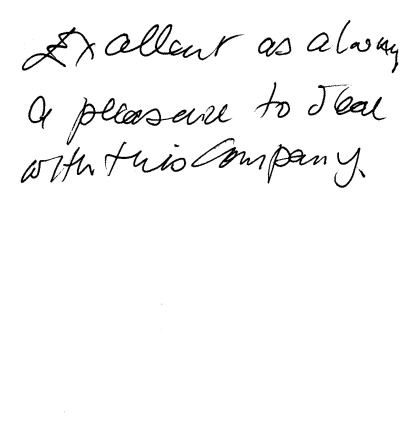 Excellent as always
a pleasure to deal
with this Company.